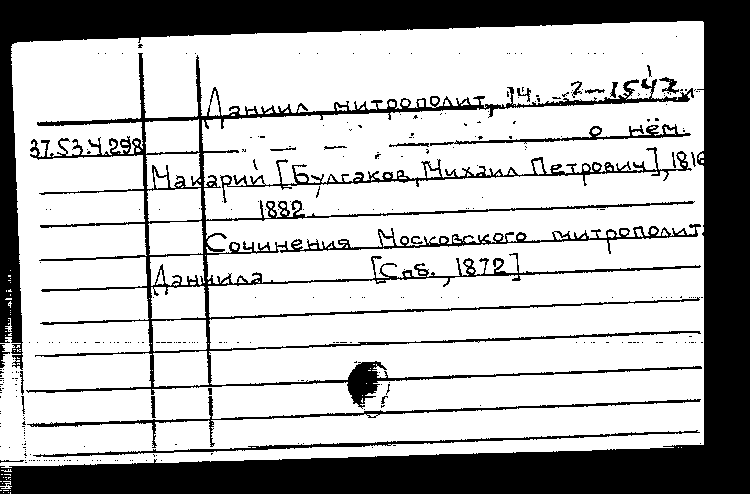 Даниил, митрополит, 14. ?-1547
о нём.
37.53.4.298
Макарий [Булгаков, Михаил Петрович], 1816
1882.
Сочинения Московского митрополит.
Даниила. [Спб., 1872].